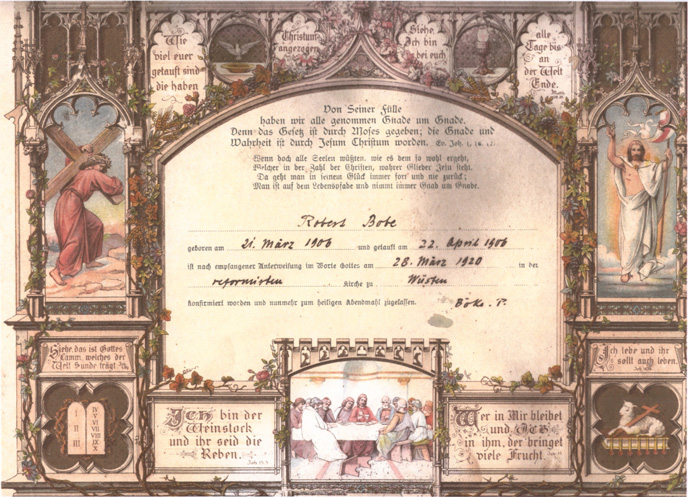 Wie
viel euer
getauft sind
die haben
Christum
angezogen
Siehe,
Ich bin
bei euch
alle
Tage bis
an
der Welt
Ende.
Von Seiner Fülle
haben wir alle genommen Gnade um Gnade.
Denn das Gesetz ist durch Moses gegeben; die Gnade und
Wahrheit ist durch Jesum Christum worden. Ev. Joh. 1, 16. 17.
Wenn doch alle Seelen wüßten, wie es dem so wohl ergeht,
Welcher in der Zahl der Christen, wahrer Glieder Jesu steht.
Da geht man in seinem Glück immer fort und nie zurück;
Man ist auf dem Lebenspfade und nimmt immer Gnad um Gnade.
Robert Bobe
geboren am 21. März 1906 und getauft am 22. April 1906
ist nach empfangener Unterweisung im Worte Gottes am 28. März 1920 in der
reformirten Kirche zu Wüsten
konfirmiert worden und nunmehr zum heiligen Abendmahl zugelassen. Böke. P.
Siehe, das ist Gottes
Lamm, welches der
Welt Sünde trägt.
Ich lebe und ihr
sollt auch leben.
I
II
III
IV
V
VI
VII
VIII
IX
X
ICH bin der
Weinstock
und ihr seid die
Reben. Joh. 15, 5.
Wer in Mir bleibet
und ICH
in ihm, der bringet
viele Frucht